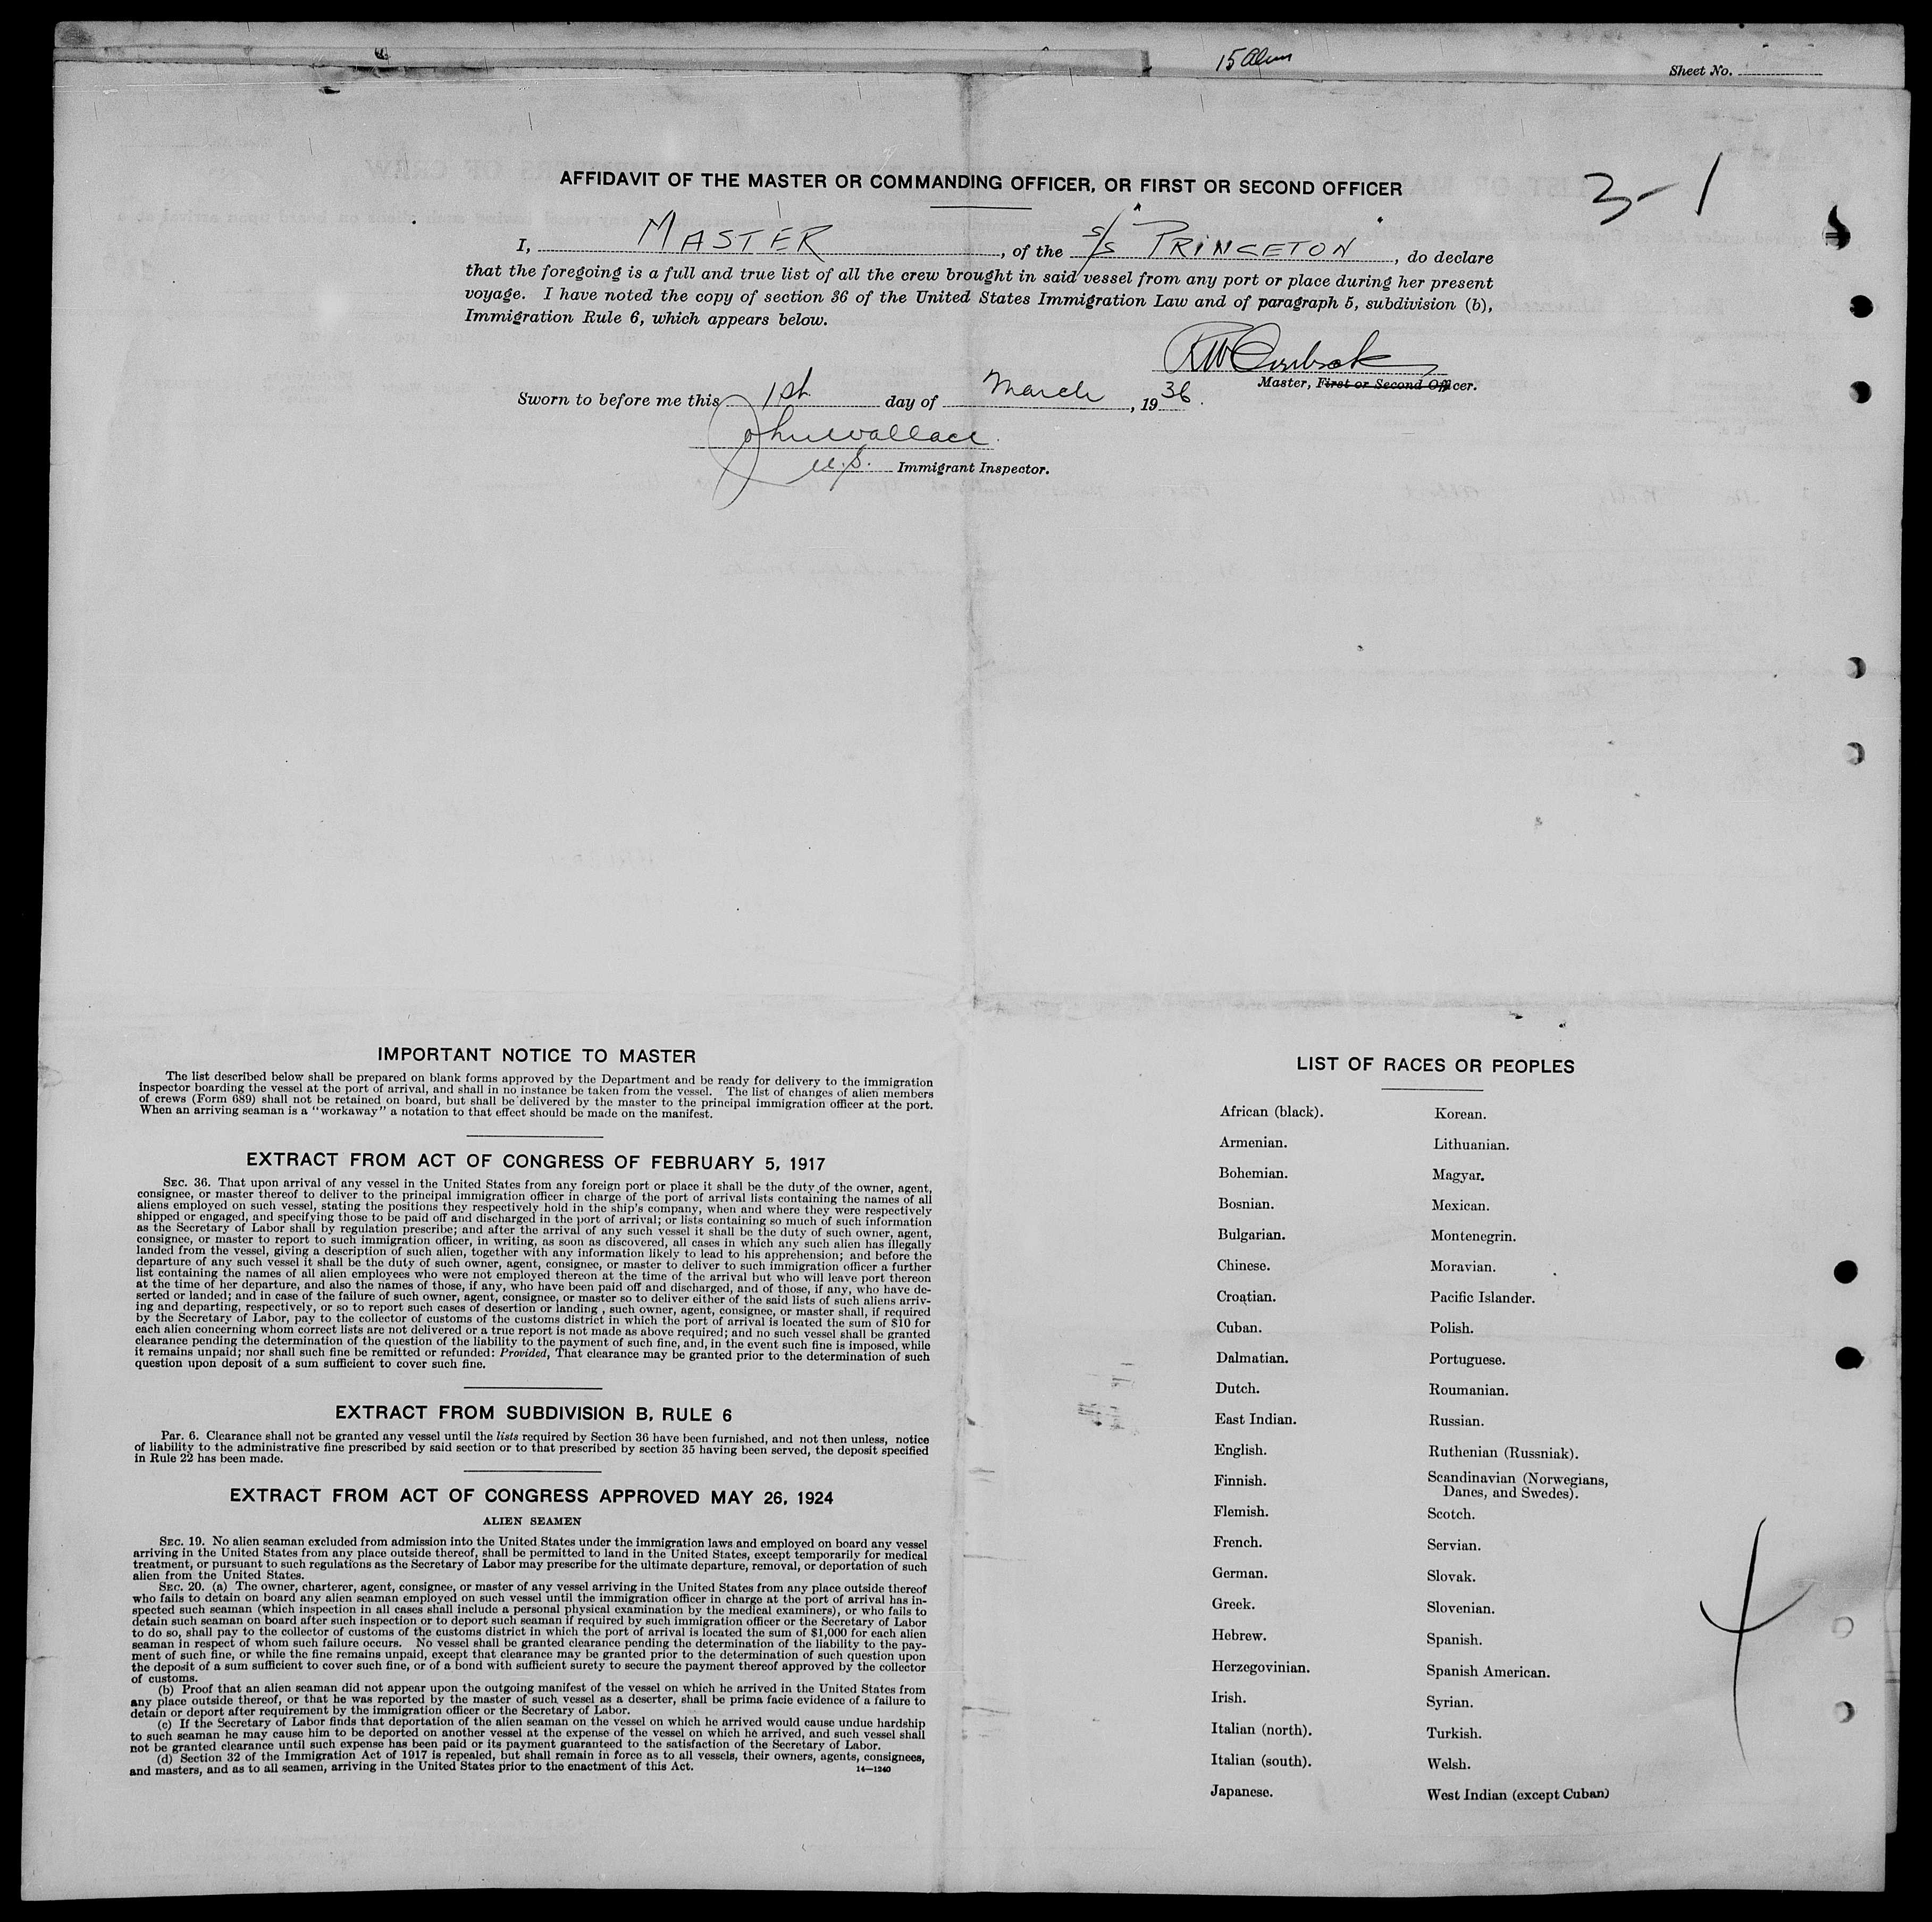 15 Aliens
Sheet No.
3-1
AFFIDAVIT OF THE MASTER OR COMMANDING OFFICER, OR FIRST OR SECOND OFFICER
I, MASTER, of the S/S "PRINCETON", do declare
that the foregoing is a full and true list of all the crew brought in said vessel from any port or place during her present
voyage. I have noted the copy of section 36 of the United States Immigration Law and of paragraph 5, subdivision (b),
Immigration Rule 6, which appears below.
Master, First or Second Officer.
Sworn to before me this 1st day of March, 1936.
John Wallace
U.S. Immigrant Inspector.
IMPORTANT NOTICE TO MASTER
The list described below shall be prepared on blank forms approved by the Department and be ready for delivery to the immigration
inspector boarding the vessel at the port of arrival, and shall in no instance be taken from the vessel. The list of changes of alien members
of crews (Form 689) shall not be retained on board, but shall be delivered by the master to the principal immigration officer at the port.
When an arriving seaman is a "workaway" a notation to that effect should be made on the manifest.
EXTRACT FROM ACT OF CONGRESS OF FEBRUARY 5, 1917
SEC. 36. That upon arrival of any vessel in the United States from any foreign port or place it shall be the duty of the owner, agent,
consignee, or master thereof to deliver to the principal immigration officer in charge of the port of arrival lists containing the names of all
aliens employed on such vessel, stating the positions they respectively hold in the ship's company, when and where they were respectively
shipped or engaged, and specifying those to be paid off and discharged in the port of arrival; or lists containing so much of such information
as the Secretary of Labor shall by regulation prescribe; and after the arrival of any such vessel it shall be the duty of such owner, agent,
consignee, or master to report to such immigration officer, in writing, as soon as discovered, all cases in which any such alien has illegally
landed from the vessel, giving a description of such alien, together with any information likely to lead to his apprehension; and before the
departure of any such vessel it shall be the duty of such owner, agent, consignee, or master to deliver to such immigration officer a further
list containing the names of all alien employees who were not employed thereon at the time of the arrival but who will leave port thereon
at the time of her departure, and also the names of those, if any, who have been paid off and discharged, and of those, if any, who have de-
serted or landed; and in case of the failure of such owner, agent, consignee, or master so to deliver either of the said lists of such aliens arriv-
ing and departing, respectively, or so to report such cases of desertion or landing , such owner, agent, consignee, or master shall, if required
by the Secretary of Labor, pay to the collector of customs of the customs district in which the port of arrival is located the sum of $10 for
each alien concerning whom correct lists are not delivered or a true report is not made as above required; and no such vessel shall be granted
clearance pending the determination of the question of the liability to the payment of such fine, and, in the event such fine is imposed, while
it remains unpaid; nor shall such fine be remitted or refunded: Provided, That clearance may be granted prior to the determination of such
question upon deposit of a sum sufficient to cover such fine.
EXTRACT FROM SUBDIVISION B, RULE 6
Par. 6. Clearance shall not be granted any vessel until the lists required by Section 36 have been furnished, and not then unless, notice
of liability to the administrative fine prescribed by said section or to that prescribed by section 35 having been served, the deposit specified
in Rule 22 has been made.
EXTRACT FROM ACT OF CONGRESS APPROVED MAY 26, 1924
ALIEN SEAMEN
SEC. 19. No alien seaman excluded from admission into the United States under the immigration laws and employed on board any vessel
arriving in the United States from any place outside thereof, shall be permitted to land in the United States, except temporarily for medical
treatment, or pursuant to such regulations as the Secretary of Labor may prescribe for the ultimate departure, removal, or deportation of such
alien from the United States.
SEC. 20. (a) The owner, charterer, agent, consignee, or master of any vessel arriving in the United States from any place outside thereof
who fails to detain on board any alien seaman employed on such vessel until the immigration officer in charge at the port of arrival has in-
spected such seaman (which inspection in all cases shall include a personal physical examination by the medical examiners), or who fails to
detain such seaman on board after such inspection or to deport such seaman if required by such immigration officer or the Secretary of Labor
to do so, shall pay to the collector of customs of the customs district in which the port of arrival is located the sum of $1,000 for each alien
seaman in respect of whom such failure occurs. No vessel shall be granted clearance pending the determination of the liability to the pay-
ment of such fine, or while the fine remains unpaid, except that clearance may be granted prior to the determination of such question upon
the deposit of a sum sufficient to cover such fine, or of a bond with sufficient surety to secure the payment thereof approved by the collector
of customs.
(b) Proof that an alien seaman did not appear upon the outgoing manifest of the vessel on which he arrived in the United States from
any place outside thereof, or that he was reported by the master of such vessel as a deserter, shall be prima facie evidence of a failure to
detain or deport after requirement by the immigration officer or the Secretary of Labor.
(c) If the Secretary of Labor finds that deportation of the alien seaman on the vessel on which he arrived would cause undue hardship
to such seaman he may cause him to be deported on another vessel at the expense of the vessel on which he arrived, and such vessel shall
not be granted clearance until such expense has been paid or its payment guaranteed to the satisfaction of the Secretary of Labor.
(d) Section 32 of the Immigration Act of 1917 is repealed, but shall remain in force as to all vessels, their owners, agents, consignees,
and masters, and as to all seamen, arriving in the United States prior to the enactment of this Act.
14—1240
LIST OF RACES OR PEOPLES
African (black).
Armenian.
Bohemian.
Bosnian.
Bulgarian.
Chinese.
Croatian.
Cuban.
Dalmatian.
Dutch.
East Indian.
English.
Finnish.
Flemish.
French.
German.
Greek.
Hebrew.
Herzegovinian.
Irish.
Italian (north).
Italian (south).
Japanese.
Korean.
Lithuanian.
Magyar.
Mexican.
Montenegrin.
Moravian.
Pacific Islander.
Polish.
Portuguese.
Roumanian.
Russian.
Ruthenian (Russniak).
Scandinavian (Norwegians,
Danes, and Swedes).
Scotch.
Servian.
Slovak.
Slovenian.
Spanish.
Spanish American.
Syrian.
Turkish.
Welsh.
West Indian (except Cuban)